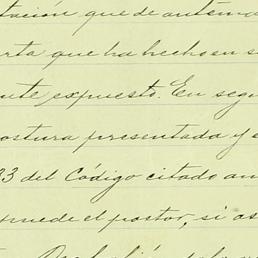 tación que de antem
rta que ha hecho en s
nte expuesto. En segu
ostura presentada y e
33 del Código citado an
puede el postor, si as